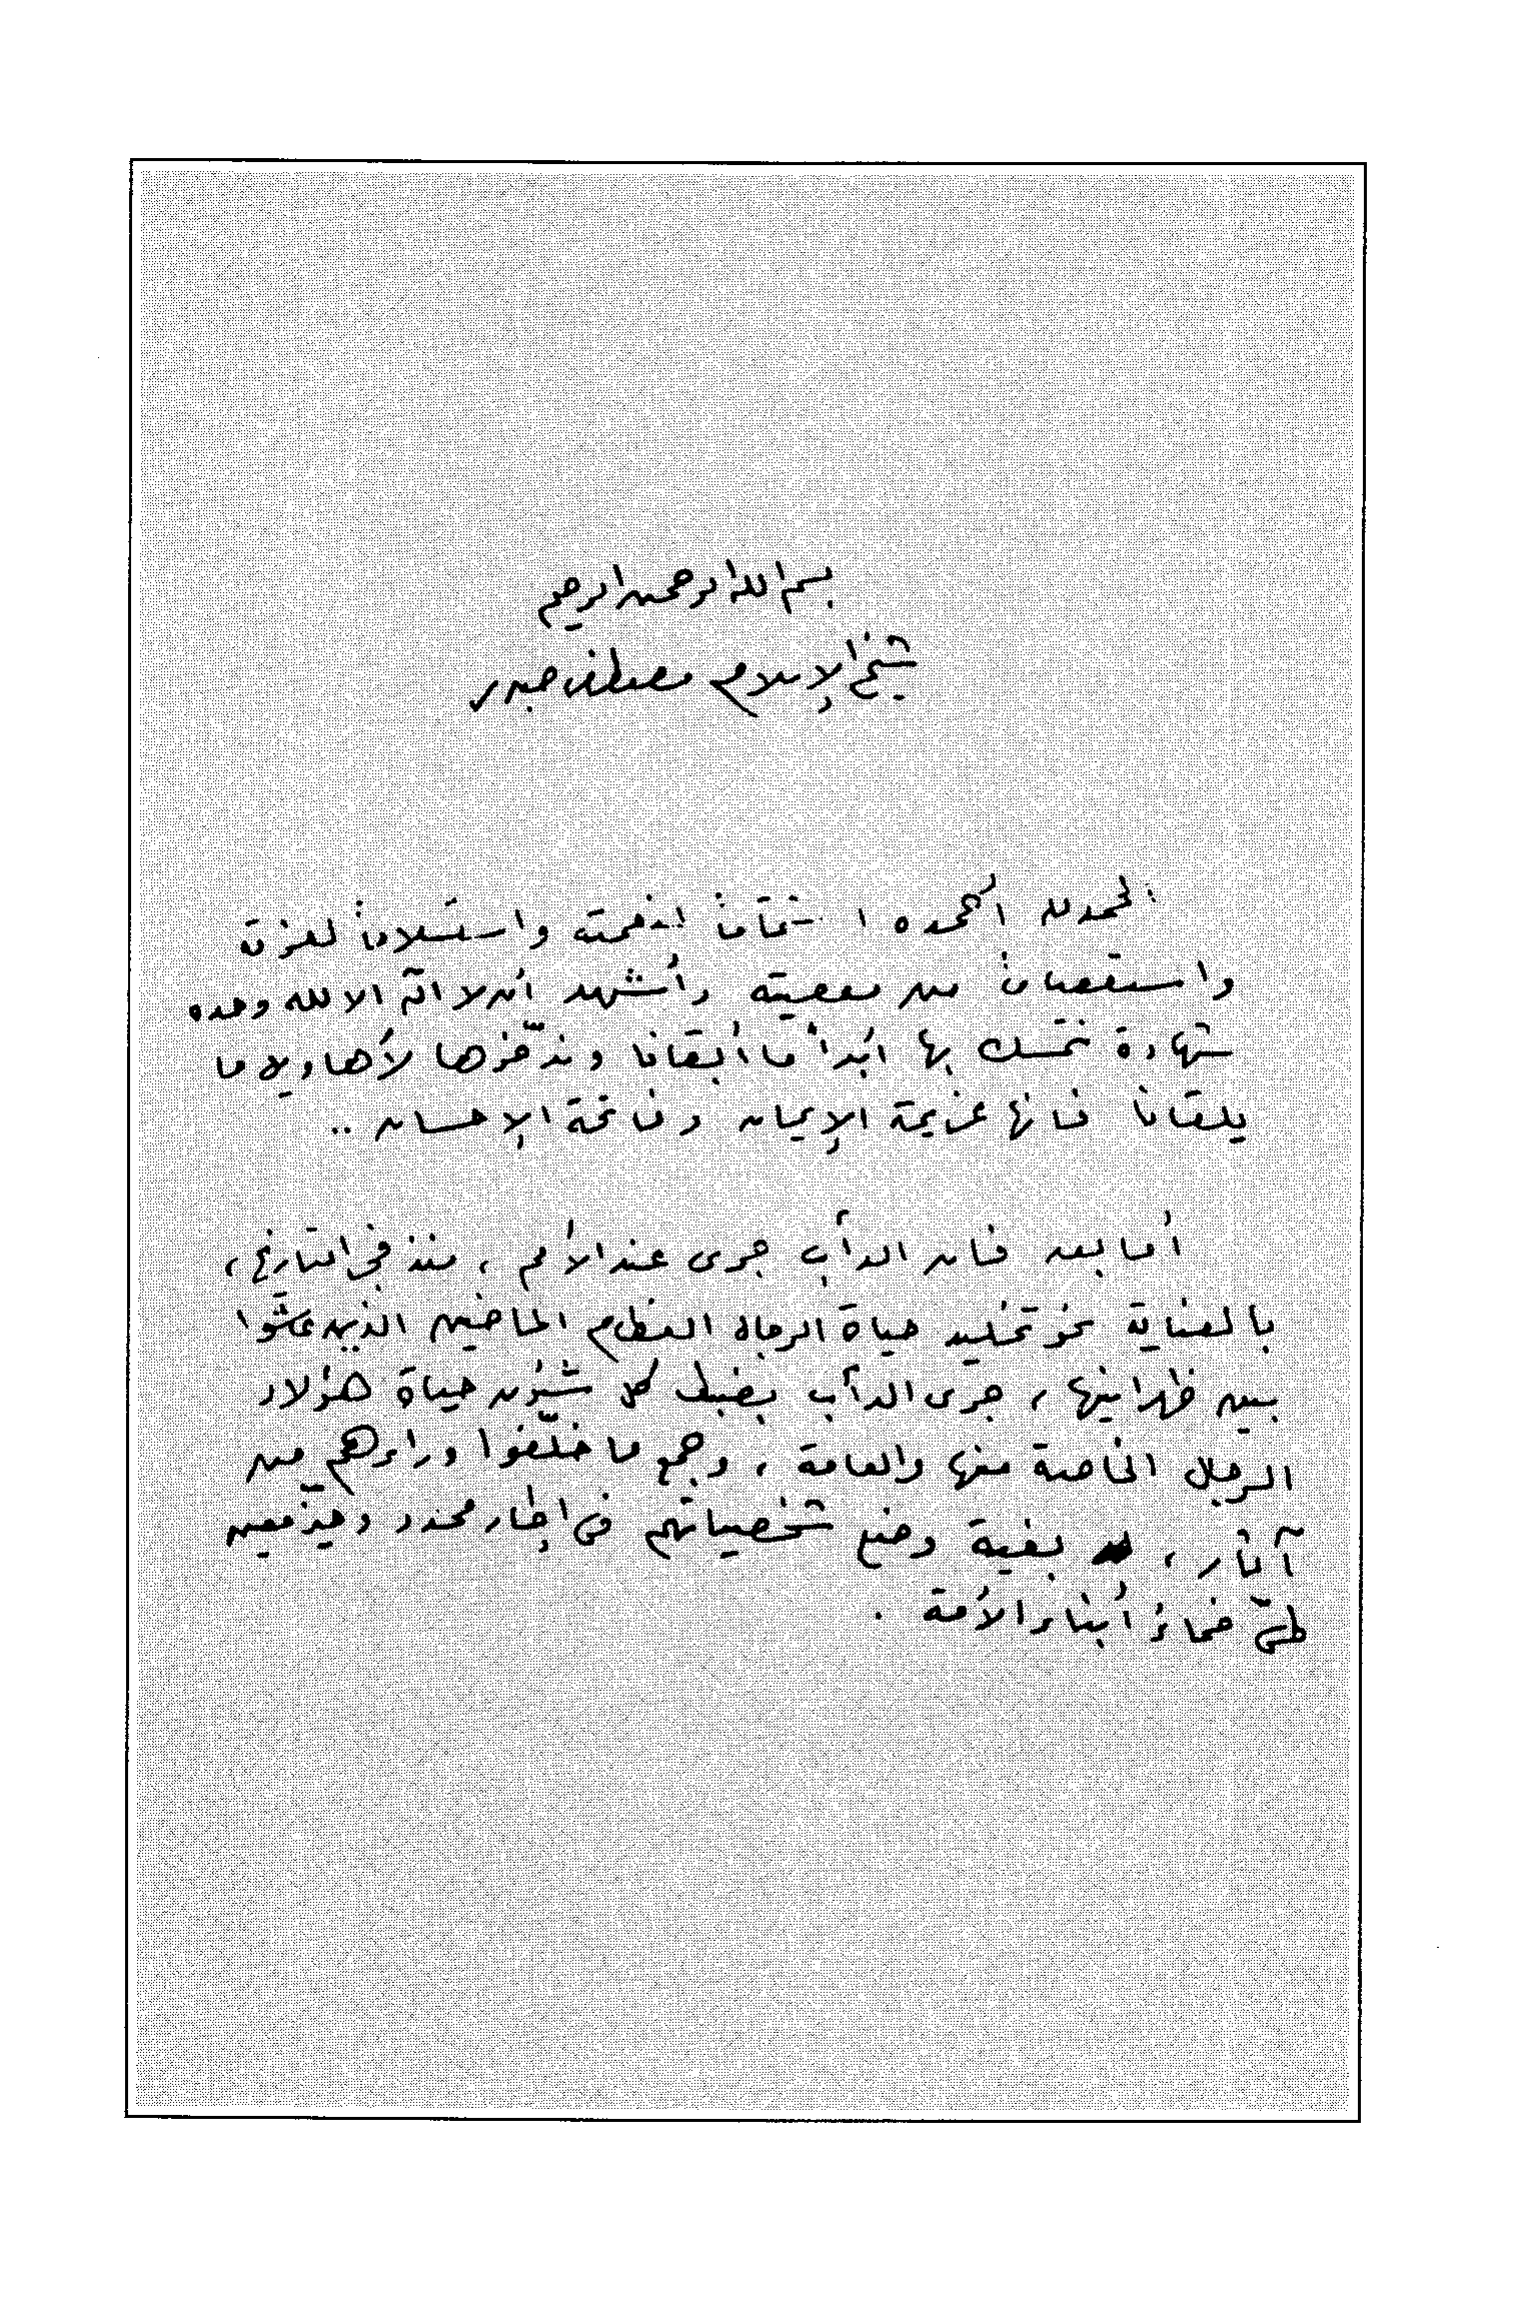 بسم الله الرحمن الرحيم
شيخ الإسلام مصطفى صبري
الحمد لله أحمده استتماماً لنعمته واستسلاماً لعزته
واستعصاماً من معصيته وأشهد أن لا اله الا الله وحده
شهادة نتمسك بها ابداً ما أبقانا وندّخرها لأهاويل ما
يلقانا فانها عزيمة الإيمان وفاتحة الإحسان ..
أما بعد فان الدأب جرى عند الأمم ، منذ فجر التاريخ ،
بالعناية نحو تخليد حياة الرجال العظام الماضين الذين عاشوا
بين ظهرانيها ، جرى الدأب بضبط كل شئون حياة هؤلاء
الرجال الخاصة منها والعامة ، وجمع ما خلّفوا وراءهم من
آثار ، بغية وضع شخصياتهم في اطار محدد وحيّز معين
طيّ ضمائر أبناء الأمة .